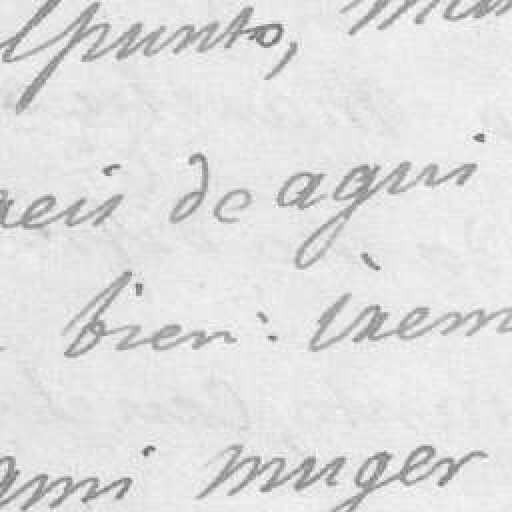 lpunto,
de aqui
bien: irem
mi muger